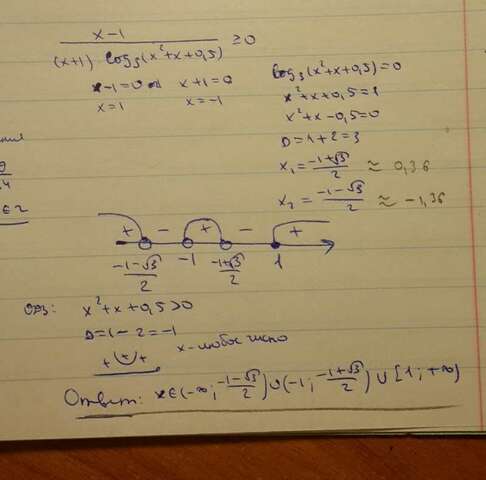 x-1
(x+1) log₃(x²+x+0,5) ≥0
x-1=0 x+1=0
x=1 x=-1
log₃(x²+x+0,5)=0
x²+x+0,5=1
x²+x-0,5=0
D=1+2=3
x₁=(-1+√3)/2 ≈ 0,36
x₂=(-1-√3)/2 ≈ -1,36
+ - + - +
(-1-√3)/2 -1 (-1+√3)/2 1
ОДЗ: x²+x+0,5>0
D=1-2=-1
x-любое число
+ + +
Ответ: x∈(-∞; (-1-√3)/2)∪(-1; (-1+√3)/2)∪[1;+∞)